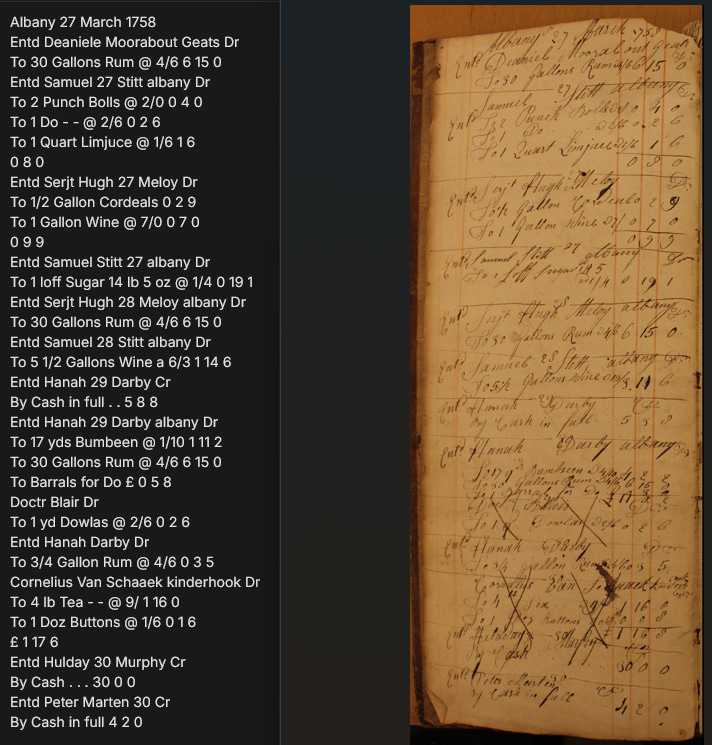 Albany 27 March 1758
Entd Deaniele Moorabout Geats Dr
To 30 Gallons Rum @ 4/6 6 15 0
Entd Samuel 27 Stitt albany Dr
To 2 Punch Bolls @ 2/0 0 4 0
To 1 Do - - @ 2/6 0 2 6
To 1 Quart Limjuce @ 1/6 1 6
0 8 0
Entd Serjt Hugh 27 Meloy Dr
To 1/2 Gallon Cordeals 0 2 9
To 1 Gallon Wine @ 7/0 0 7 0
0 9 9
Entd Samuel Stitt 27 albany Dr
To 1 loff Sugar 14 lb 5 oz @ 1/4 0 19 1
Entd Serjt Hugh 28 Meloy albany Dr
To 30 Gallons Rum @ 4/6 6 15 0
Entd Samuel 28 Stitt albany Dr
To 5 1/2 Gallons Wine a 6/3 1 14 6
Entd Hanah 29 Darby Cr
By Cash in full . . 5 8 8
Entd Hanah 29 Darby albany Dr
To 17 yds Bumbeen @ 1/10 1 11 2
To 30 Gallons Rum @ 4/6 6 15 0
To Barrals for Do £ 0 5 8
Doctr Blair Dr
To 1 yd Dowlas @ 2/6 0 2 6
Entd Hanah Darby Dr
To 3/4 Gallon Rum @ 4/6 0 3 5
Cornelius Van Schaaek kinderhook Dr
To 4 lb Tea - - @ 9/ 1 16 0
To 1 Doz Buttons @ 1/6 0 1 6
£ 1 17 6
Entd Hulday 30 Murphy Cr
By Cash . . . 30 0 0
Entd Peter Marten 30 Cr
By Cash in full 4 2 0
Albany 27 March 1758
Entd Deaniel Moorabout Geats
To 30 Gallons Rum 4/6 6 15 0
Samuel 27 Stitt albany Dr
Entd To 2 Punch Bolls 0 4 0
To 1 Do 2/6 0 2 6
To 1 Quart Limjuce 1 6
0 8 0
Entd Serjt Hugh Meloy Dr
To 1/2 Gallon 0 2 9
To 1 Gallon Wine 7/ 0 7 0
0 9 9
Entd Samuel Stitt 27 albany Dr
To 1 Loff Sugar 14 5
1/4 0 19 1
Serjt Hugh 28 Meloy albany
Entd To 30 Gallons Rum 4/6 6 15 0
Entd Samuel 28 Stitt albany Dr
To 5 1/2 Gallons Wine 14 6
Entd Hanah 29 Darby Cr
By Cash in full 5 8 8
Entd Hanah Darby albany Dr
To 17 yd Bumbeen
To 30 Gallons Rum 4/6 6 15
To for Do £
To 1 yd Dowlas 2/6 0 2 6
Entd Hanah Darby Dr
To 3/4 Gallon Rum 4/6 0 3 5
Cornelius Van
To 4 Tea 9/ 1 16 0
To 1 Buttons
£ 1 16 8
Entd 30 Murphy
By Cash 30 0 0
Entd Peter Marten 30 Cr
By Cash in full
4 2 0